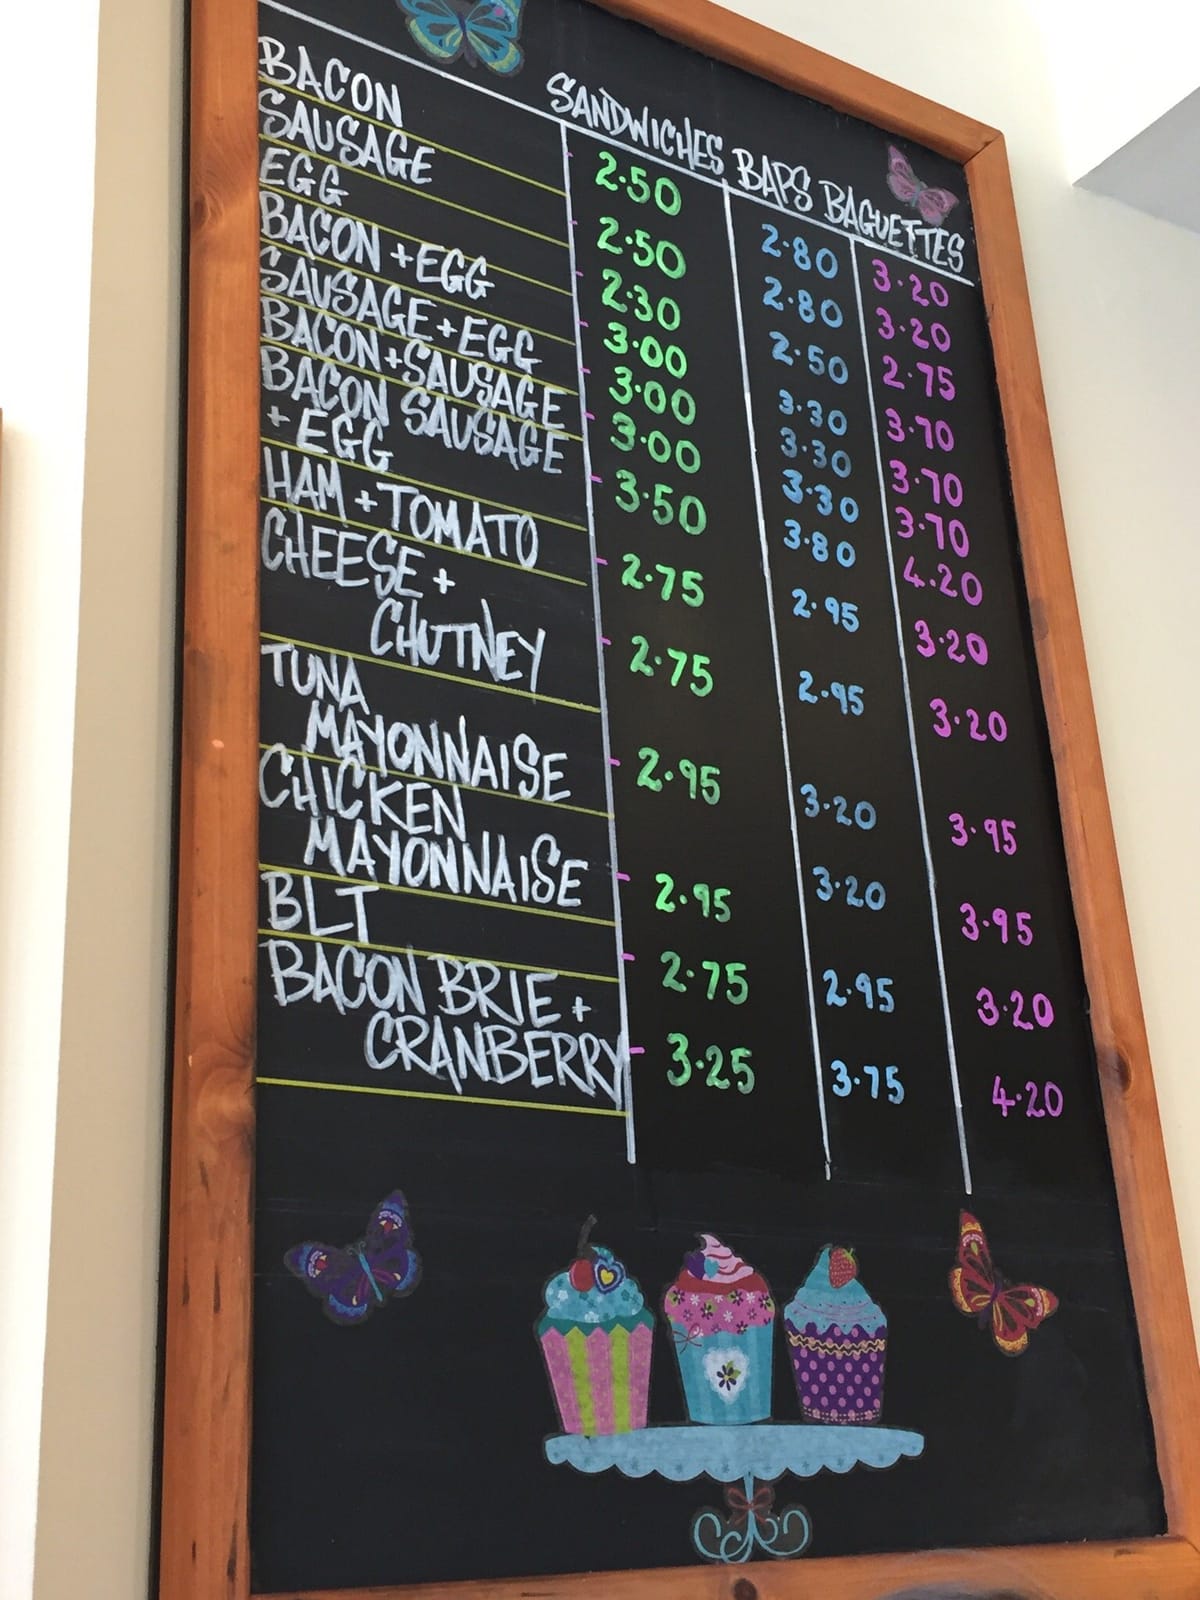 SANDWICHES BAPS BAGUETTES
BACON 2.50 2.80 3.20
SAUSAGE 2.50 2.80 3.20
EGG 2.30 2.50 2.75
BACON + EGG 3.00 3.30 3.70
SAUSAGE + EGG 3.00 3.30 3.70
BACON + SAUSAGE 3.00 3.30 3.70
BACON SAUSAGE
+ EGG 3.50 3.80 4.20
HAM + TOMATO 2.75 2.95 3.20
CHEESE +
CHUTNEY 2.75 2.95 3.20
TUNA
MAYONNAISE 2.95 3.20 3.95
CHICKEN
MAYONNAISE 2.95 3.20 3.95
BLT 2.75 2.95 3.20
BACON BRIE +
CRANBERRY 3.25 3.75 4.20